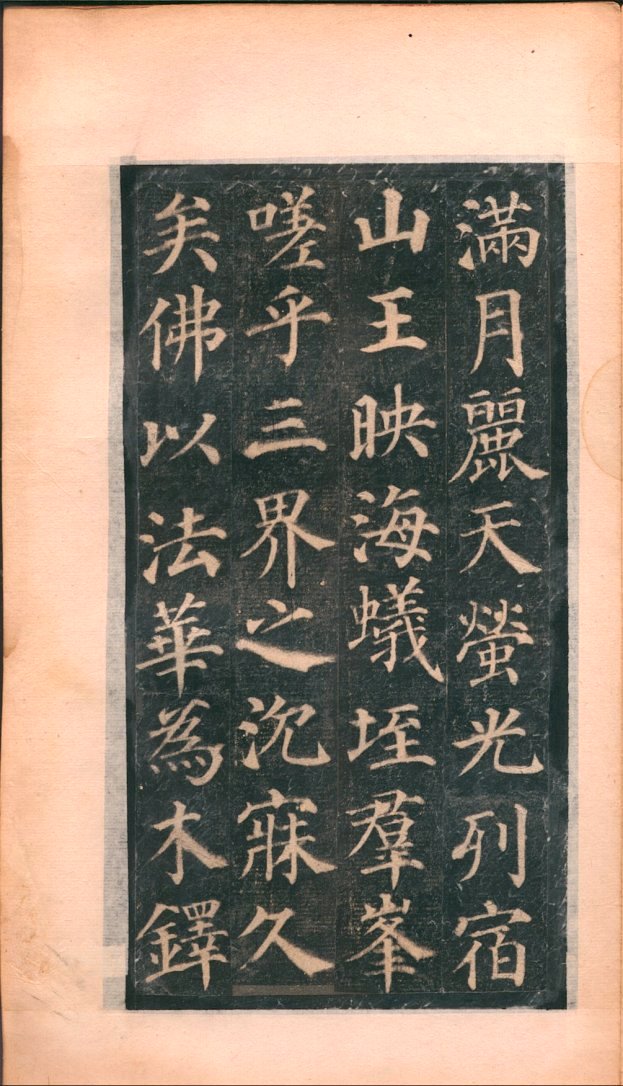 滿月麗天螢光列宿
山王映海蟻垤羣峯
嗟乎三界之沉寐久
矣佛以法華為木鐸